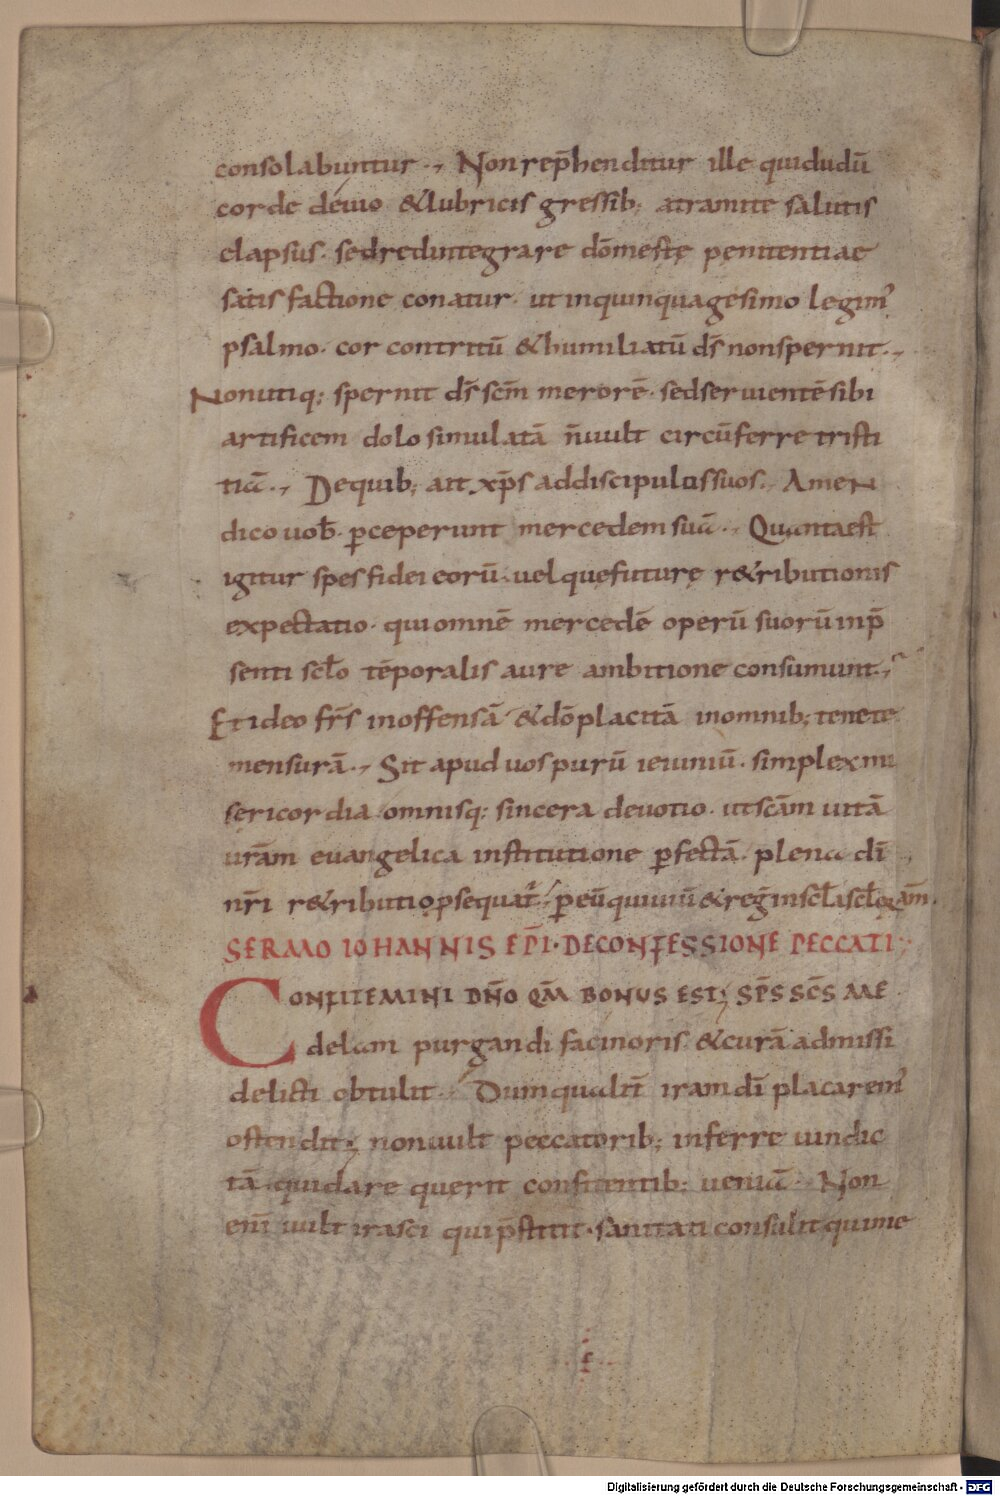 consolabuntur·, Non rep̄henditur ille quidudū
corde deuio &lubricis gressib; atramite salutis
elapsus· sedredintegrare dōmestę penitentiae
satisfactione conatur· ut inquinquagesimo legim᾿
psalmo· cor contritū &humiliatū d̄s nonspernit·,
Nonutiq; spernit d̄s sc̄m merorē· sedseruientē sibi
artificem dolo simulatā n̄uult circūferre tristi
tiā·, Dequib; ait xp̄s addiscipulossuos·, Amen
dico uob̄· ꝑceperunt mercedem suā·, Quantaest
igitur spes fidei eorū· uel quęfuturę r&ributionis
expectatio· qui omnē mercedē operū suorū inp̄
senti scl̄o tēporalis aure ambitione consumunt·,
Et ideo fr̄s inoffensā &dō placitā inomnib; tenete
mensurā·, Sit apud uos purū ieiuniū· simplex mi
sericordia omnisq; sincera deuotio· utsc̄am uitā
ur̄am euangelica institutione ꝑfectā· plena dī
nr̄i r&ributio ꝓsequat᾿· ꝑ eū quiuiū&reḡ inscl̄a scl̄oꝝ am̄·
SERMO IOHANNIS EP̄I· DECONFESSIONE PECCATI;
CONFITEMINI DN̄O QM̄ BONUS EST; SP̄S SC̄S ME
delam purgandi facinoris &curā admissi
delicti obtulit· Dum qualit̄ iram dī placarem᾿
ostendit; nonuult peccatorib; inferre uindic
tā· quidare querit confitentib; ueniā· Non
eni̅ uult irasci qui p̄stitit· sanitati consulit quime
Digitalisierung gefördert durch die Deutsche Forschungsgemeinschaft - DFG